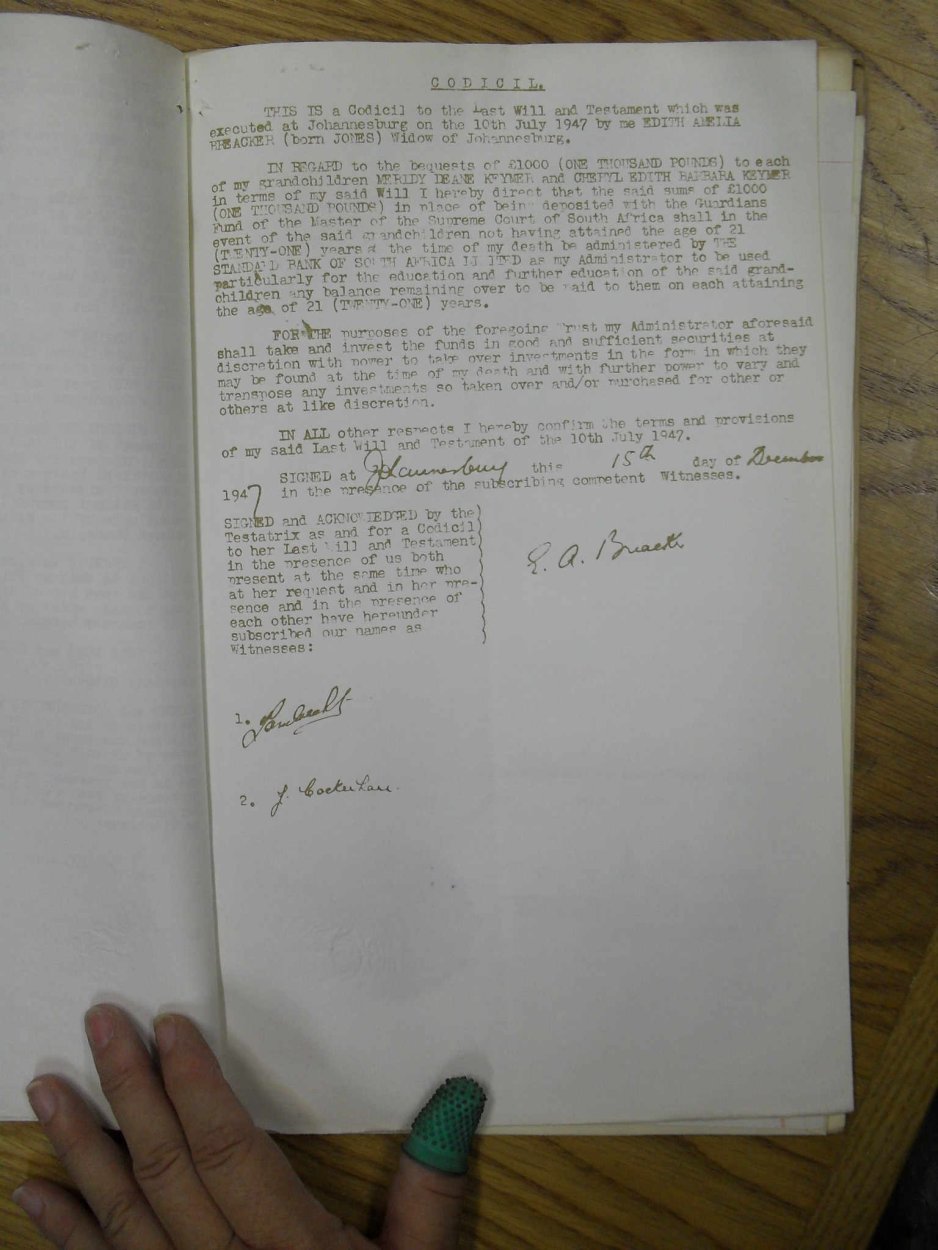 CODICIL.
THIS IS a Codicil to the Last Will and Testament which was
executed at Johannesburg on the 10th July 1947 by me EDITH AMELIA
BREACKER (born JONES) Widow of Johannesburg.
IN REGARD to the bequests of £1000 (ONE THOUSAND POUNDS) to each
of my grandchildren MERIDY DEANE KEYMER and CHERYL EDITH BARBARA KEYMER
in terms of my said Will I hereby direct that the said sums of £1000
(ONE THOUSAND POUNDS) in place of being deposited with the Guardians
Fund of the Master of the Supreme Court of South Africa shall in the
event of the said grandchildren not having attained the age of 21
(TWENTY-ONE) years at the time of my death be administered by THE
STANDARD BANK OF SOUTH AFRICA LIMITED as my Administrator to be used
particularly for the education and further education of the said grand-
children any balance remaining over to be paid to them on each attaining
the age of 21 (TWENTY-ONE) years.
FOR THE purposes of the foregoing Trust my Administrator aforesaid
shall take and invest the funds in good and sufficient securities at
discretion with power to take over investments in the form in which they
may be found at the time of my death and with further power to vary and
transpose any investments so taken over and/or purchased for other or
others at like discretion.
IN ALL other respects I hereby confirm the terms and provisions
of my said Last Will and Testament of the 10th July 1947.
SIGNED at Johannesburg this 15th day of December
1947 in the presence of the subscribing competent Witnesses.
SIGNED and ACKNOWLEDGED by the
Testatrix as and for a Codicil
to her Last Will and Testament
in the presence of us both
present at the same time who
at her request and in her pre-
sence and in the presence of
each other have hereunder
subscribed our names as
Witnesses:
E. A. Breacker
1.
2. J. Cockerham.